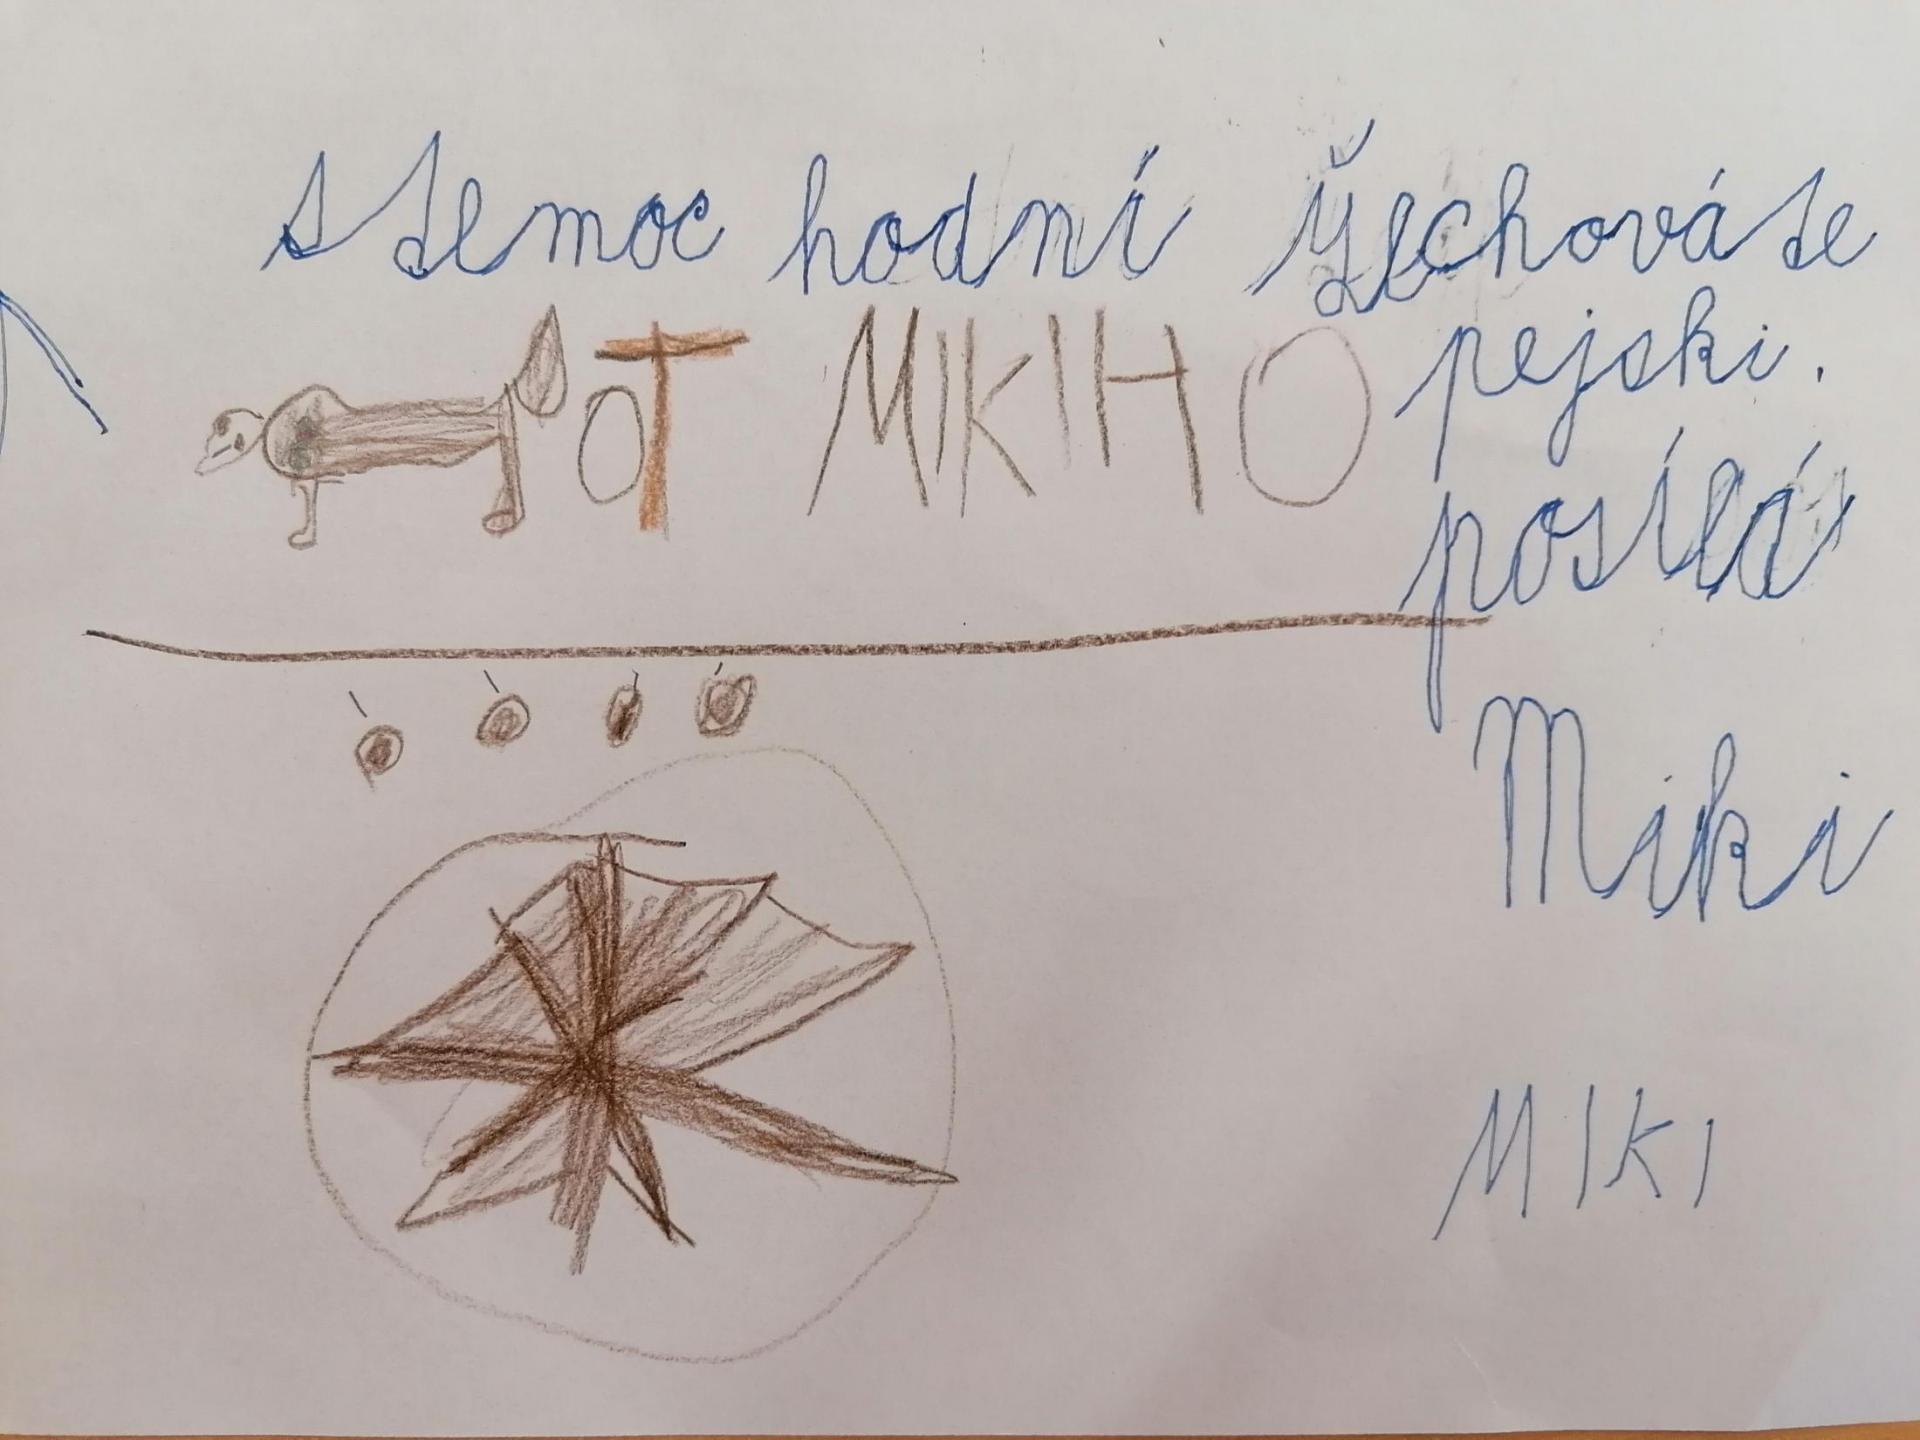 stemoc hodní žechováte
OT MIKIHO
pejski.
posílá
Miki
MIKI